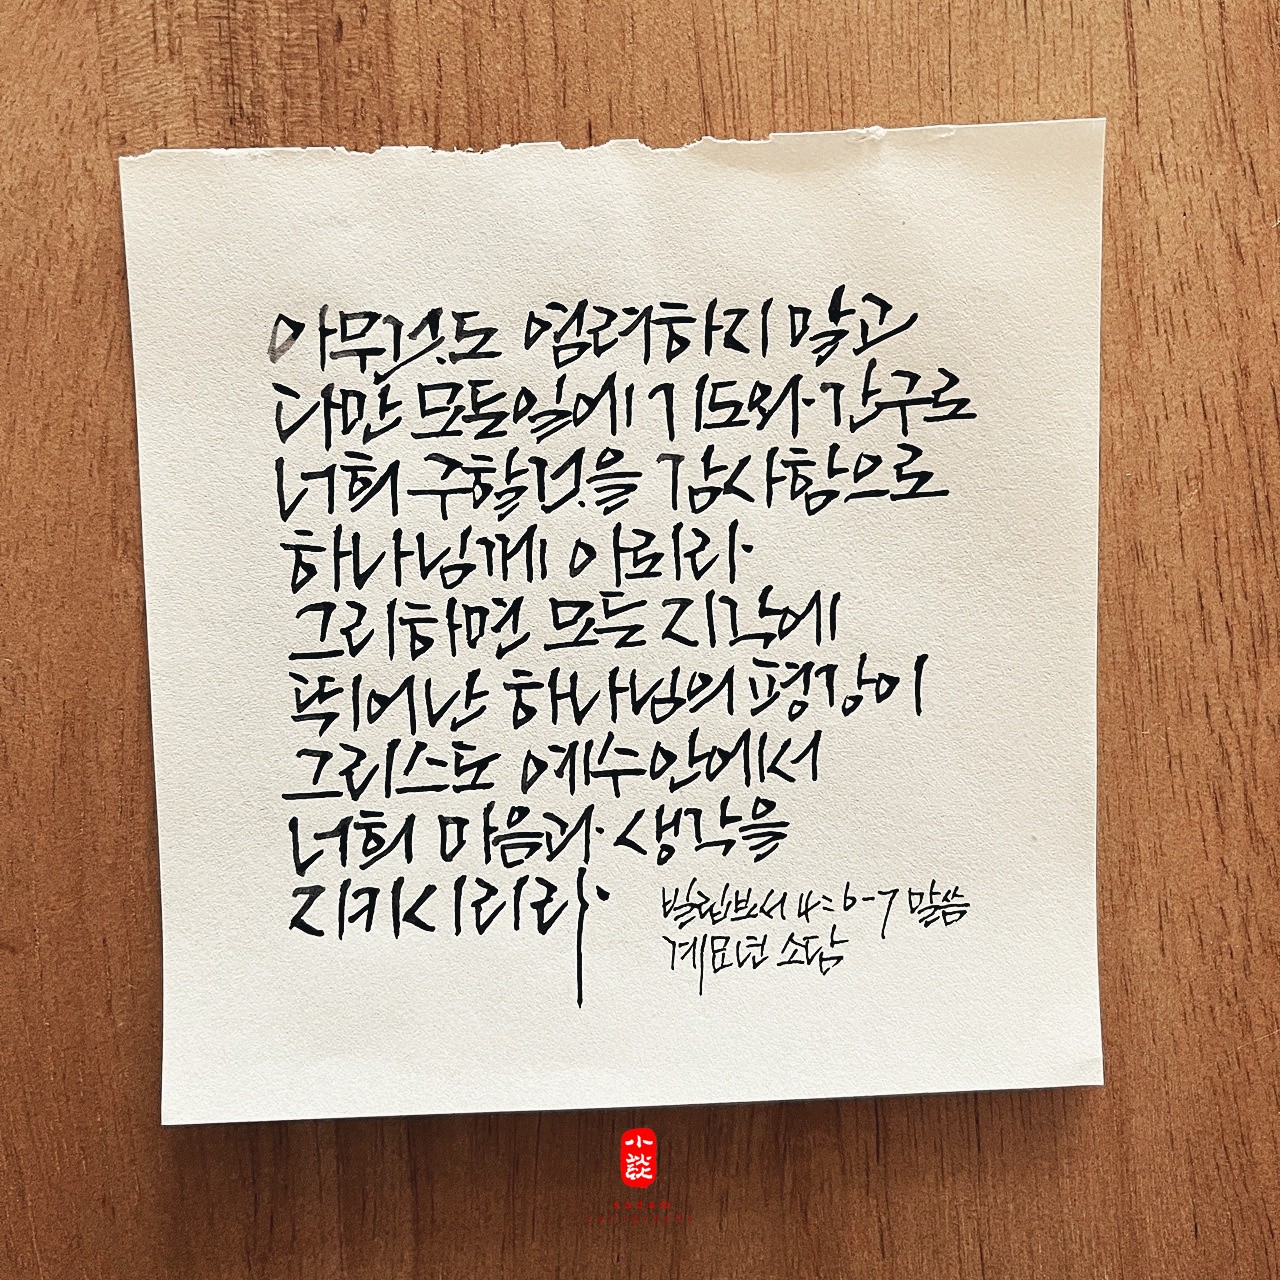 아무것도 염려하지 말고
다만 모든일에 기도와 간구로
너희 구할것을 감사함으로
하나님께 아뢰라
그리하면 모든 지각에
뛰어난 하나님의 평강이
그리스도 예수안에서
너희 마음과 생각을
지키시리라
빌립보서 4:6-7 말씀
계묘년 소담
小
談